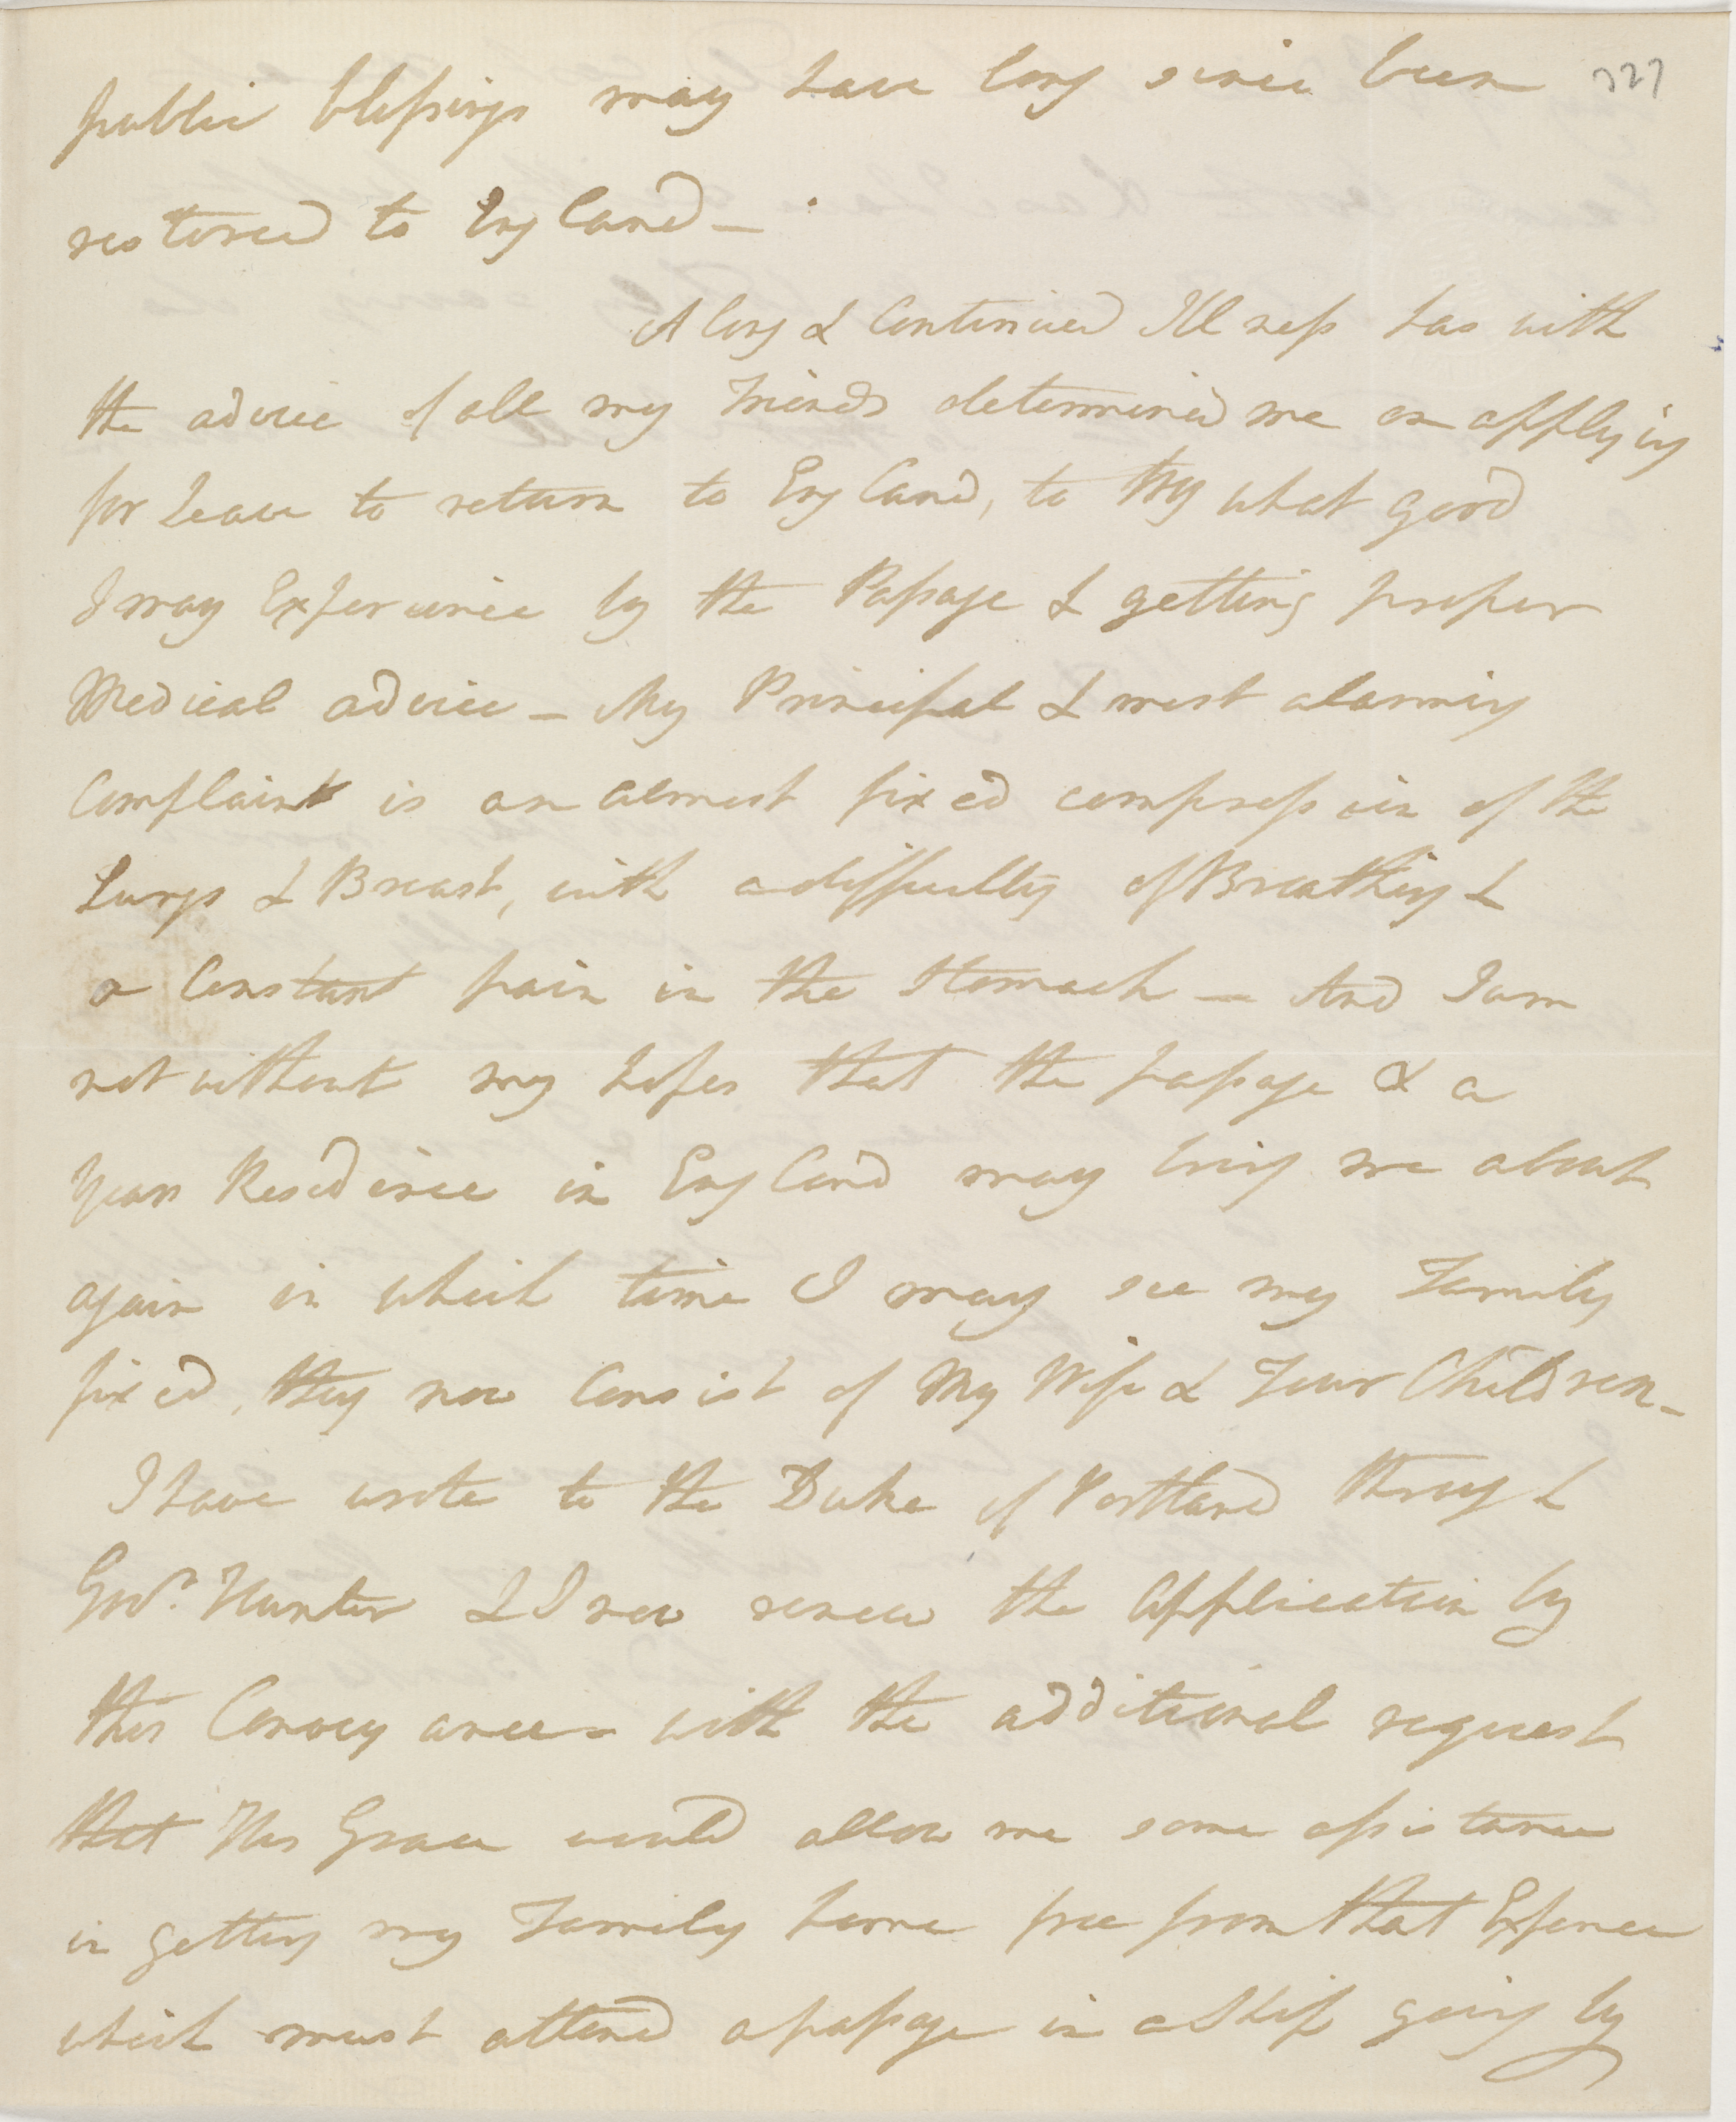 public blessings may have long since been 327
restored to England -
A long & Continued Illness has with
the advice of all my Friends determined me on applying
for Leave to return to England, to try what good
I may Experience by the Passage & getting proper
Medical advice - My Principal & most alarming
Complaint is an almost fixed compression of the
Lungs & Breast, with a difficulty of Breathing &
a Constant pain in the Stomach - And I am
not without my hopes that the passage & a
years Residence in England may bring me about
again in which time I may see my Family
fixed, they now Consist of My Wife & Four Children -
I have wrote to the Duke of Portland through
Govr. Hunter & I now renew the Application by
this Conveyance - with the additional request
that His Grace would allow me some assistance
in getting my Family home free from that Expence
which must attend a passage in a Ship going by